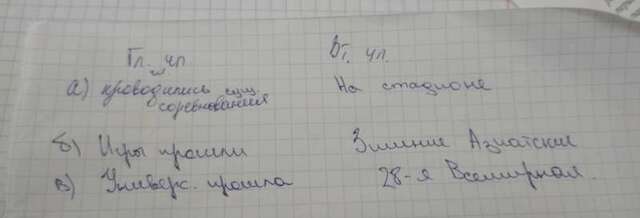 Гл. чл Вт. чл.
а) проводились сущ. На стадионе
соревнования
б) Игры прошли Зимние Азиатские
в) Универс. прошла 28-я Всемирная.